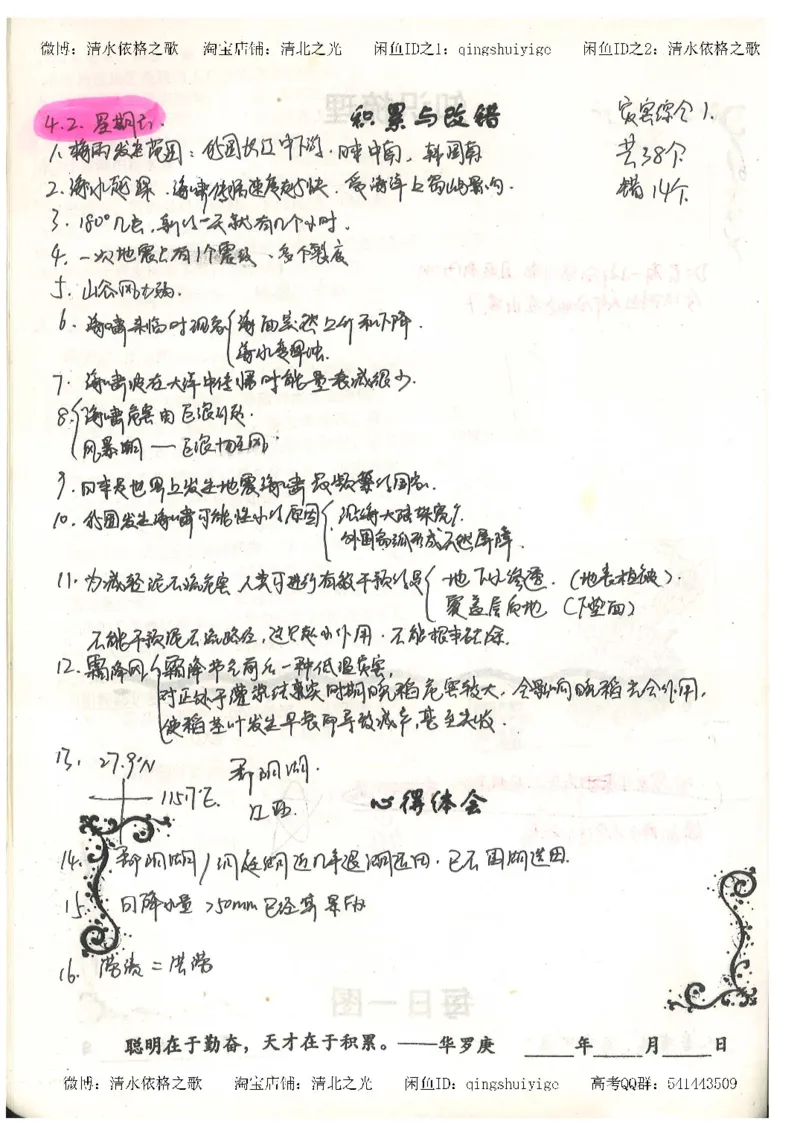 微博：清水依格之歌 淘宝店铺：清北之光 闲鱼ID之1：qingshuiyige 闲鱼ID之2：清水依格之歌
4.2. 星期六. 积累与改错 灾害综合1.
共38个
错14个
1. 梅雨发生范围：我国长江中下游. 日本中南, 韩国南
2. 海水越深. 海啸传播速度越快. 受海洋上岛屿影响.
3. 180°几点, 新的一天就有几个小时.
4. 一次地震只有1个震级、多个烈度
5. 山谷风
6. 海啸来临时现象 海面突然上升和下降.
海水变浑浊.
7. 海啸波在大洋中传播时能量衰减很少.
8. 海啸危害由巨浪引起.
风暴潮 — 巨浪+
9. 日本是世界上发生地震海啸最频繁的国家.
10. 我国发生海啸可能性小的原因 沿海大陆架宽广.
外围岛弧形成天然屏障.
11. 为减轻泥石流危害 人类可进行有效干预的是 地下水渗透. (地表植被).
覆盖层质地 (下垫面)
不能干预泥石流路径, 这只起小作用. 不能根本祛除.
12. 霜降风 霜降节气前后一种低温灾害,
对正处于灌浆结实时期晚稻危害较大, 会影响晚稻光合作用,
使稻茎叶发生早衰而导致减产, 甚至失收.
13. 27.9°N 鄱阳湖.
115.7°E. 江西. 心得体会
14. 鄱阳湖/洞庭湖近几年退湖还田. 已不围湖造田.
15. 日降水量 >50mm 已经算暴雨
16. 涝渍 = 洪涝
聪明在于勤奋，天才在于积累。——华罗庚 ____年____月____日
微博：清水依格之歌 淘宝店铺：清北之光 闲鱼ID：qingshuiyige 高考QQ群：541443509